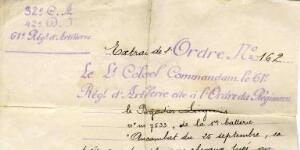 32e C. A
42e D. I
61e Régt d'Artillerie
Extrait de l'Ordre No 162
Le Lt Colonel Commandant le 61e
Régt d'Artillerie cite à l'Ordre du Régiment
le Brigadier
no m 7533, de la 1re batterie
"Au combat du 25 septembre, sa